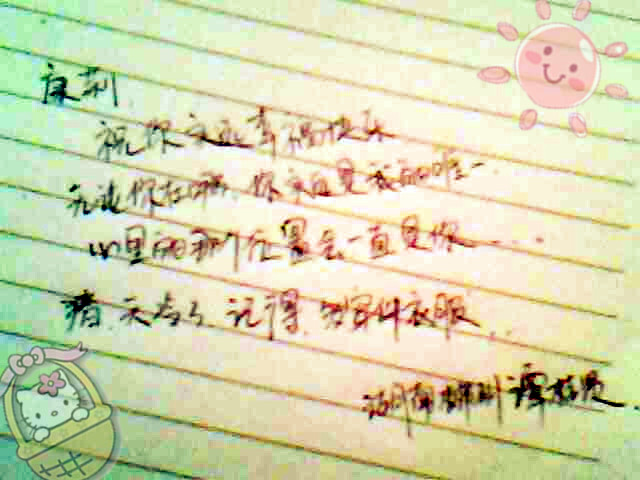 麻莉
祝你永远幸福快乐
无论你在哪，你永远是我的唯一.
心里的那个位置会一直是你....
猪，天冷了，记得，多穿件衣服...
湖南 谭